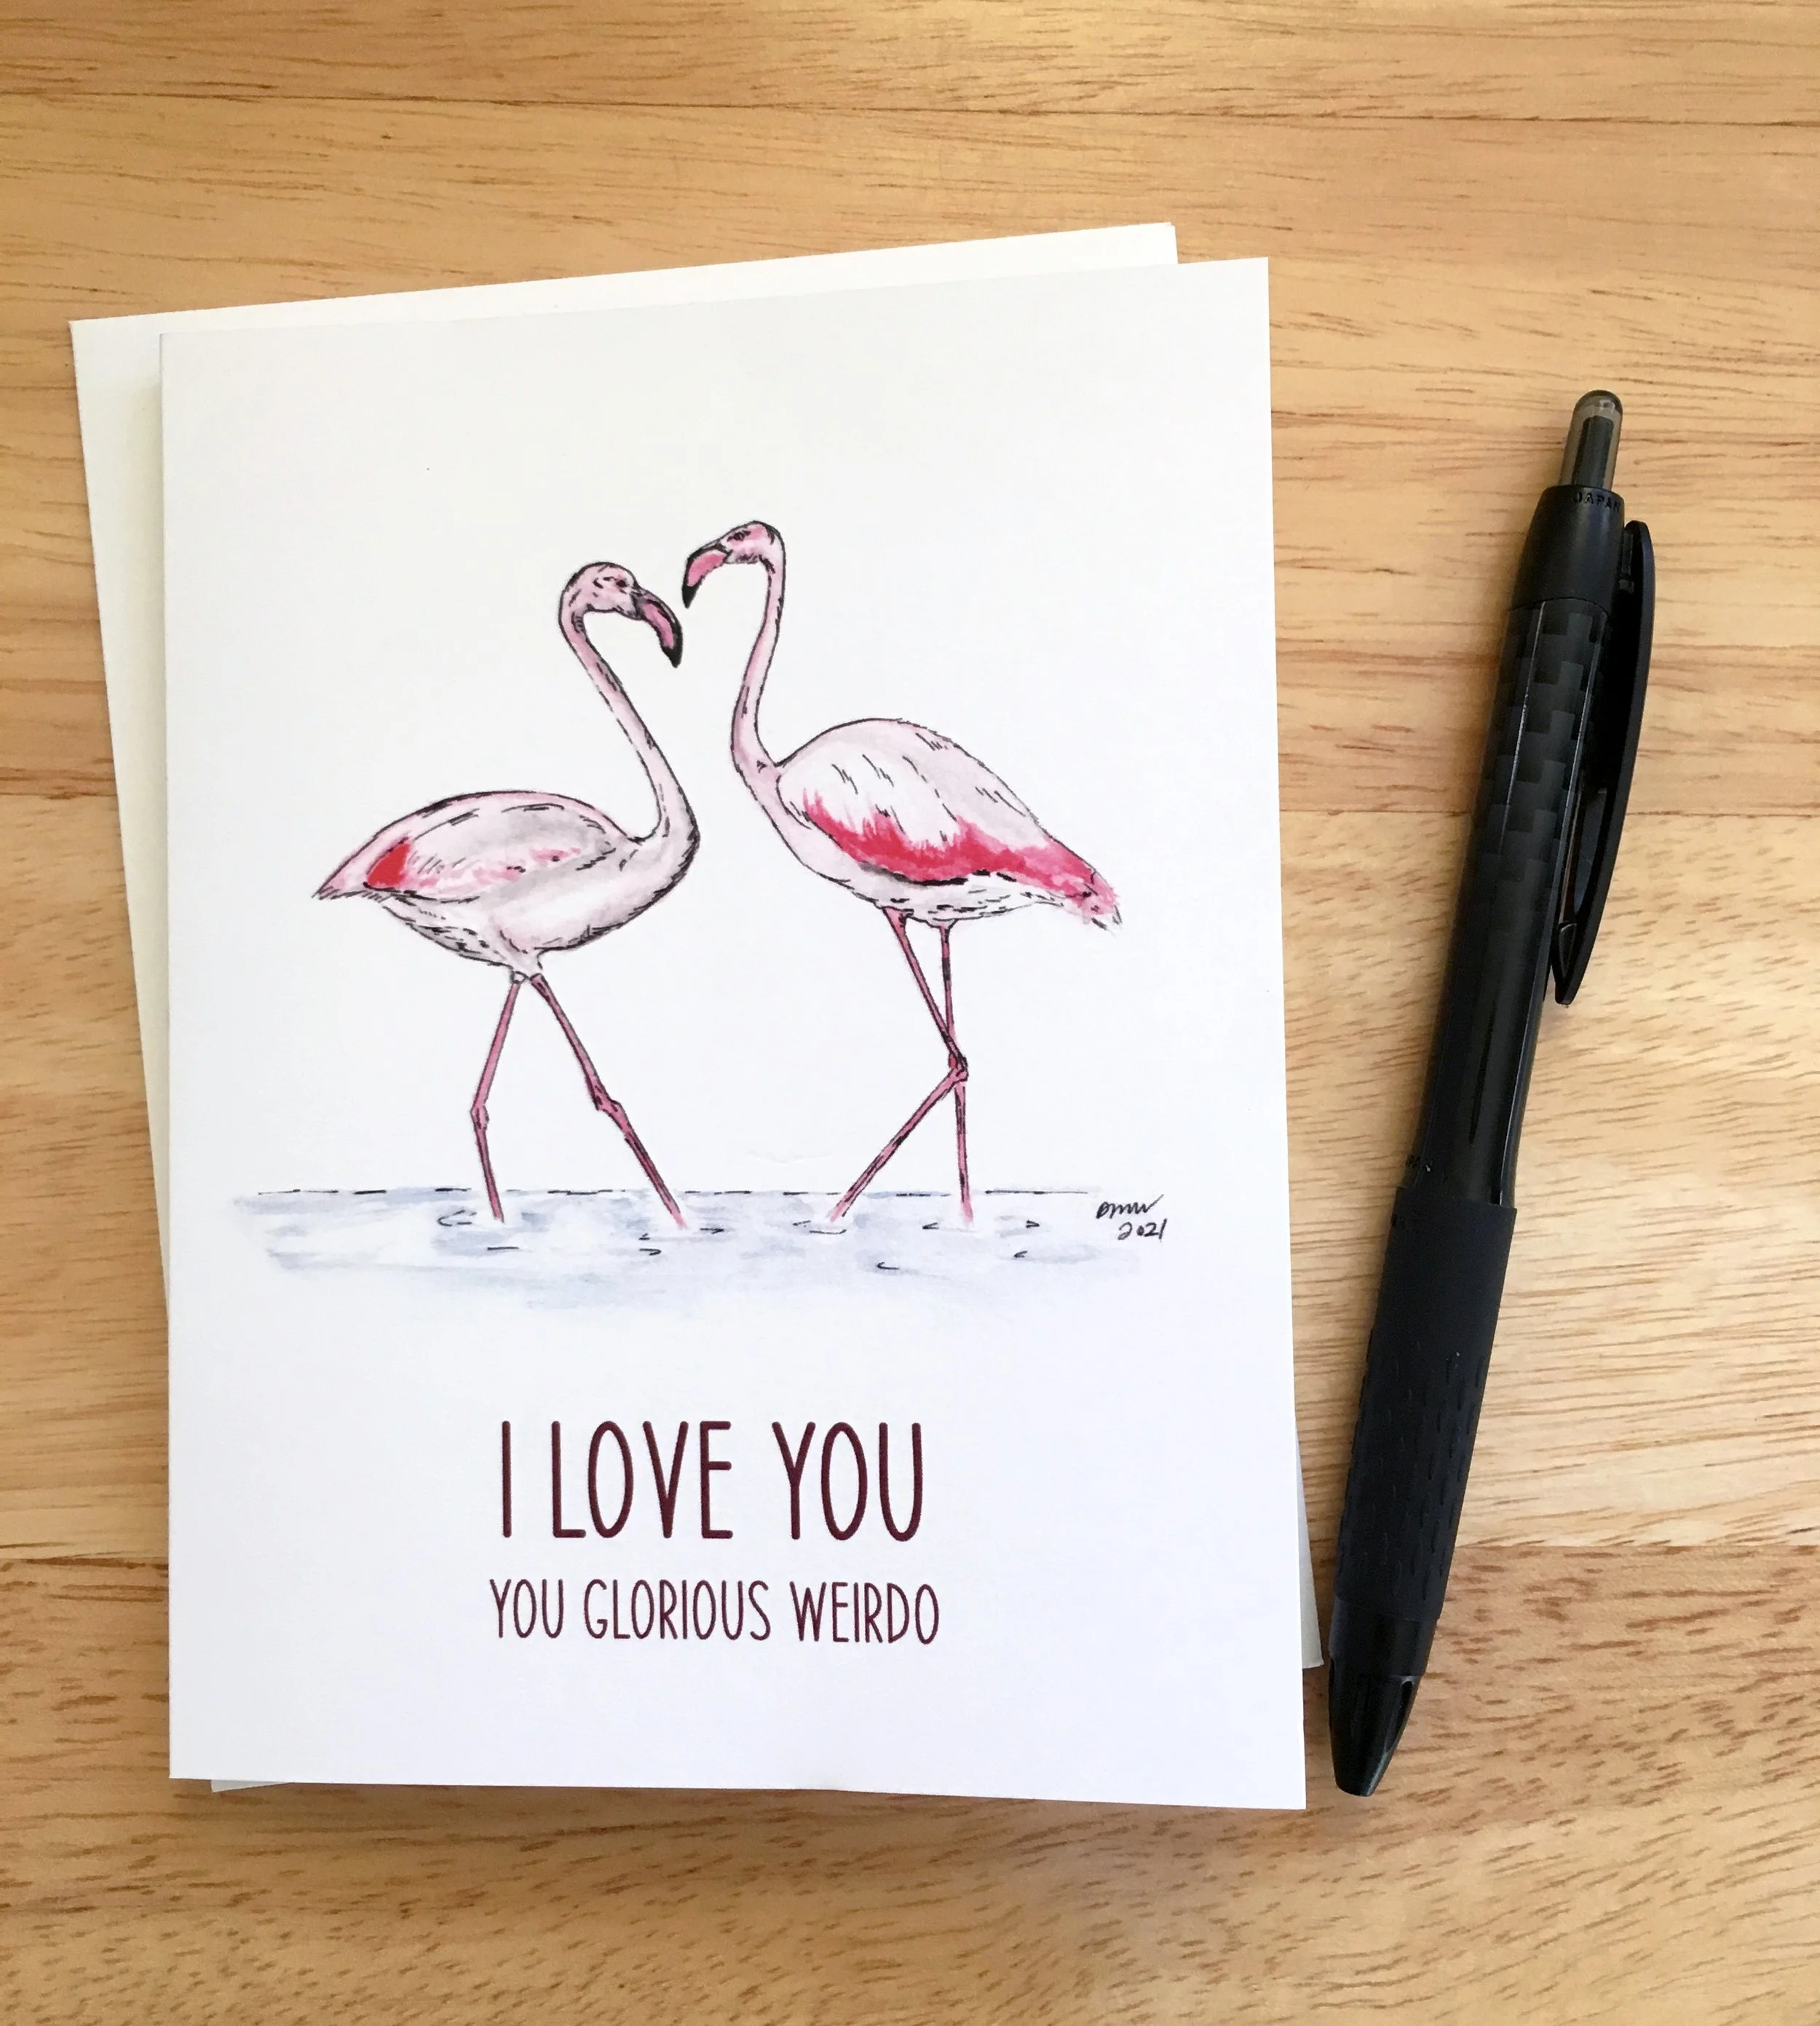 JAPAN
2021
I LOVE YOU
YOU GLORIOUS WEIRDO